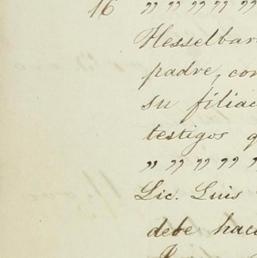 16 " " " " "
Hesselbar
padre, con
su filiac
testigos q
" " " " "
Lic. Luis
debe hac